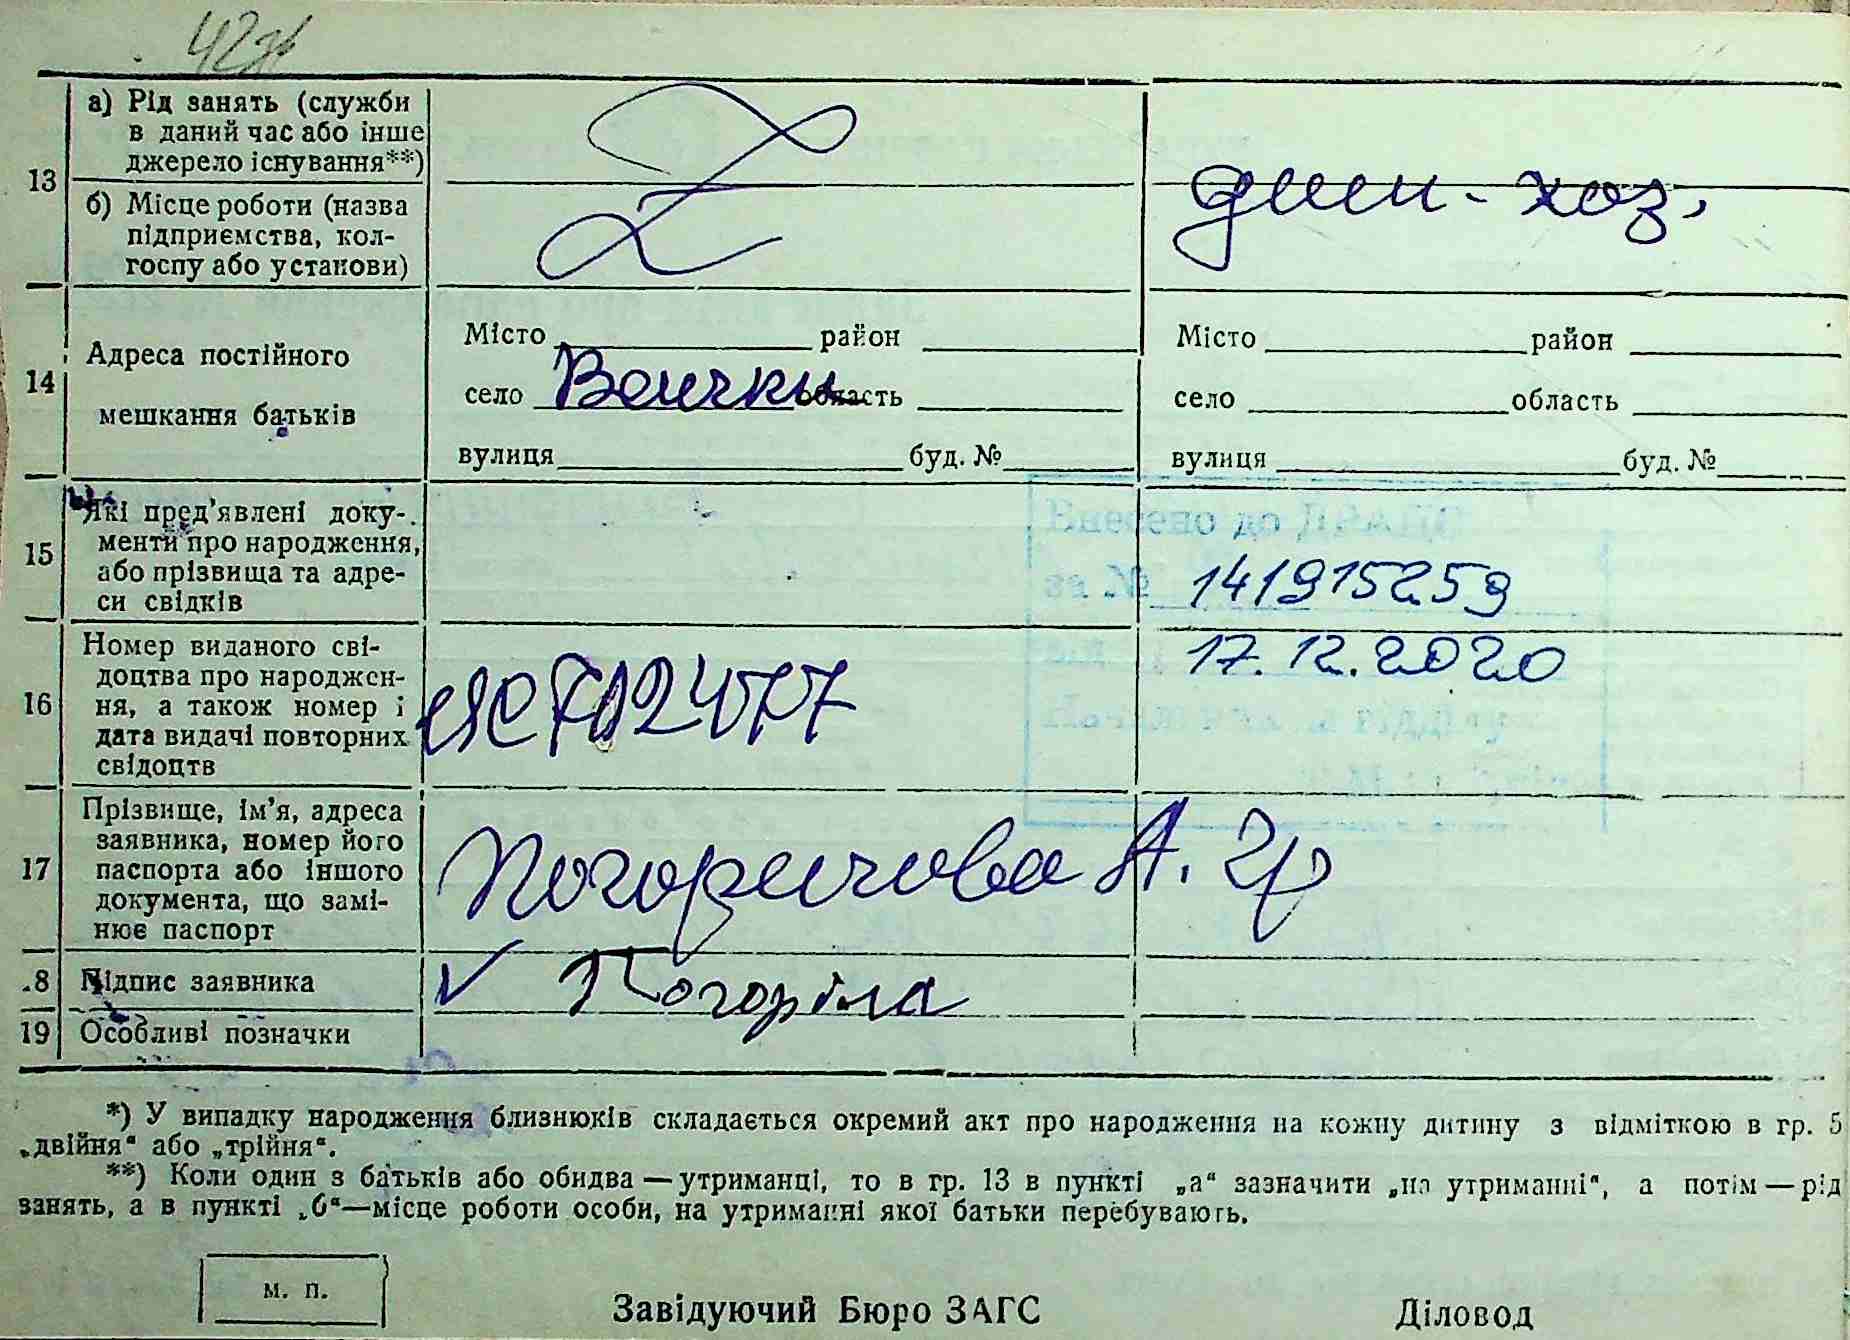 42
13
а) Рід занять (служби
в даний час або інше
джерело існування**)
б) Місце роботи (назва
підприємства, кол-
госпу або установи)
дом-хоз.
14
Адреса постійного
мешкання батьків
Місто район
село Велички область
вулиця буд. №
Місто район
село область
вулиця буд. №
15
Які пред’явлені доку-
менти про народження,
або прізвища та адре-
си свідків
Внесено до ДРАЦС
за № 141915259
від 17.12.2020
Начальник відділу
16
Номер виданого сві-
доцтва про народжен-
ня, а також номер і
дата видачі повторних
свідоцтв
17
Прізвище, ім’я, адреса
заявника, номер його
паспорта або іншого
документа, що замі-
нює паспорт
А. Гр
18
Підпис заявника
Погоріла
19
Особливі позначки
*) У випадку народження близнюків складається окремий акт про народження на кожну дитину з відміткою в гр. 5
„двійня“ або „трійня“.
**) Коли один з батьків або обидва — утриманці, то в гр. 13 в пункті „а“ зазначити „на утриманні“, а потім — рід
занять, а в пункті „б“—місце роботи особи, на утриманні якої батьки перебувають.
м. п.
Завідуючий Бюро ЗАГС
Діловод